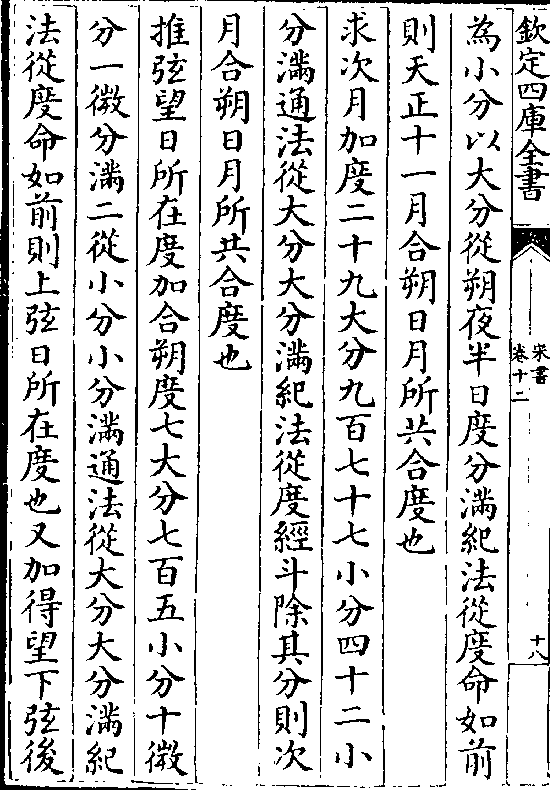 欽定四庫全書
宋書
卷十二
十八
為小分以大分從朔夜半日度分滿紀法從度命如前
則天正十一月合朔日月所共合度也
求次月加度二十九大分九百七十七小分四十二小
分滿通法從大分大分滿紀法從度經斗除其分則次
月合朔日月所共合度也
推弦望日所在度加合朔度七大分七百五小分十微
分一微分滿二從小分小分滿通法從大分大分滿紀
法從度命如前則上弦日所在度也又加得望下弦後